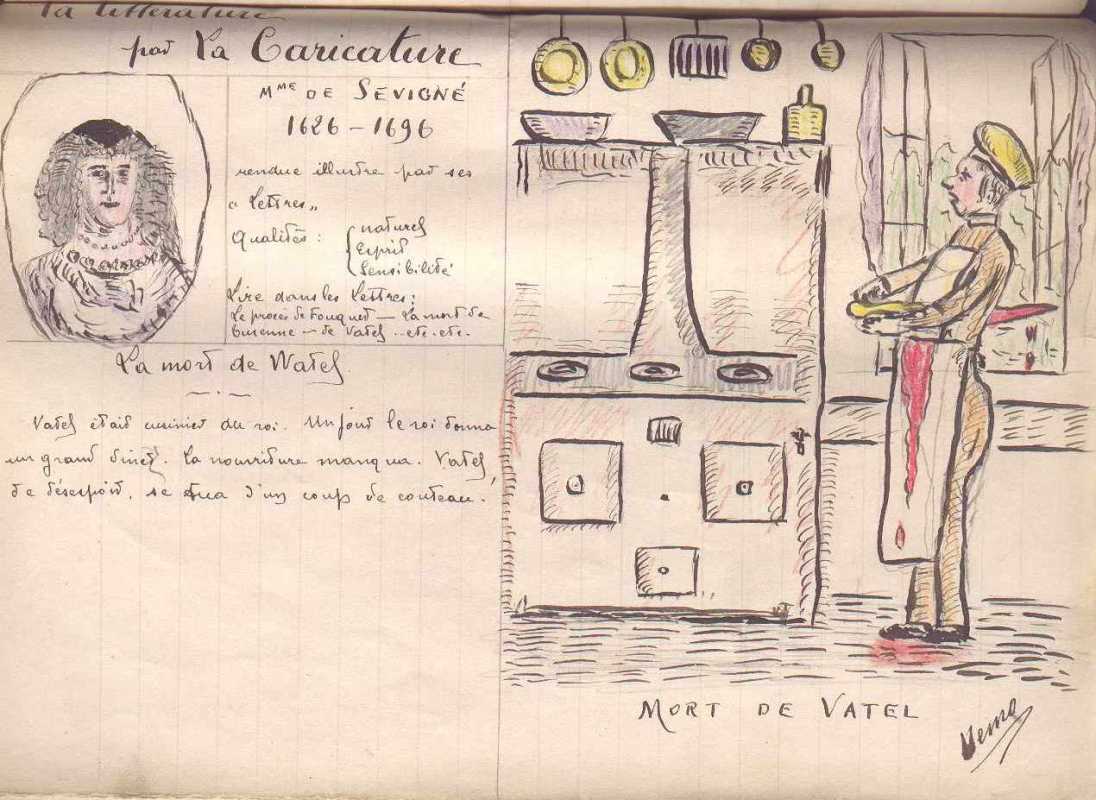 la littérature
par La Caricature
Mme DE SÉVIGNÉ
1626 - 1696
rendue illustre par ses
« Lettres »
Qualités : { naturel
Esprit
Sensibilité
Lire dans les Lettres :
Le procès de Fouquet — La mort de
Turenne — de Vatel - etc. etc.
La mort de Watel
Vatel était cuisinier du roi. Un jour le roi donna
un grand dîner. La nourriture manqua. Vatel,
de désespoir, se tua d'un coup de couteau.
MORT DE VATEL